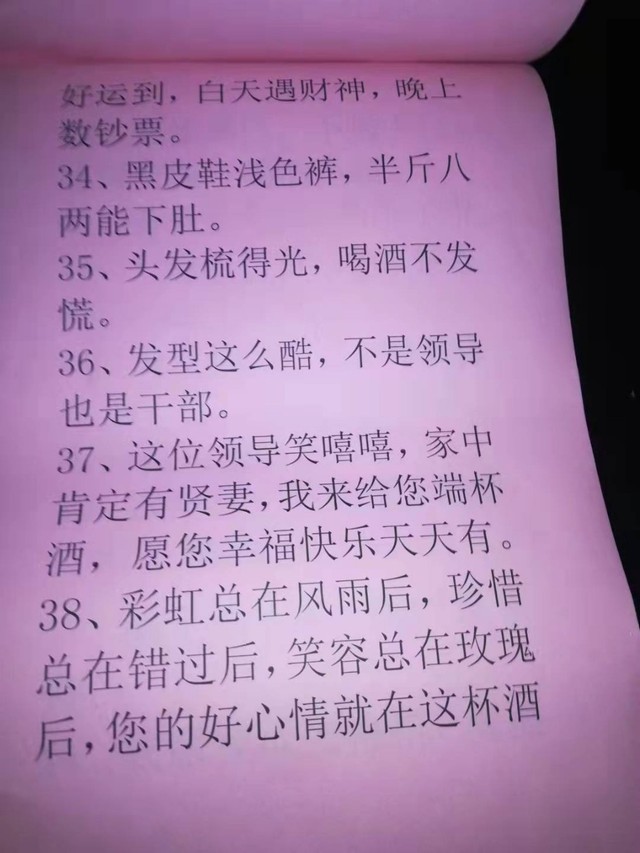 好运到，白天遇财神，晚上
数钞票。
34、黑皮鞋浅色裤，半斤八
两能下肚。
35、头发梳得光，喝酒不发
慌。
36、发型这么酷，不是领导
也是干部。
37、这位领导笑嘻嘻，家中
肯定有贤妻，我来给您端杯
酒，愿您幸福快乐天天有。
38、彩虹总在风雨后，珍惜
总在错过后，笑容总在玫瑰
后，您的好心情就在这杯酒